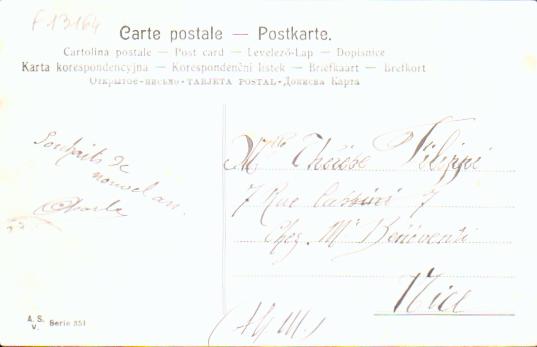 F 13164
Carte postale — Postkarte.
Cartolina postale — Post card — Levelező-Lap — Dopisnice
Karta korespondencyjna — Korespondenční lístek — Briefkaart — Brefkort
Открытое-письмо-TARJETA POSTAL-Дописна Карта
Souhaits de
nouvel an.
Mlle Thérèse Filippi
7 Rue Cassini 7
Chez Mr Benoventi
Nice
(A. M.)
A. S.
V. Serie 351